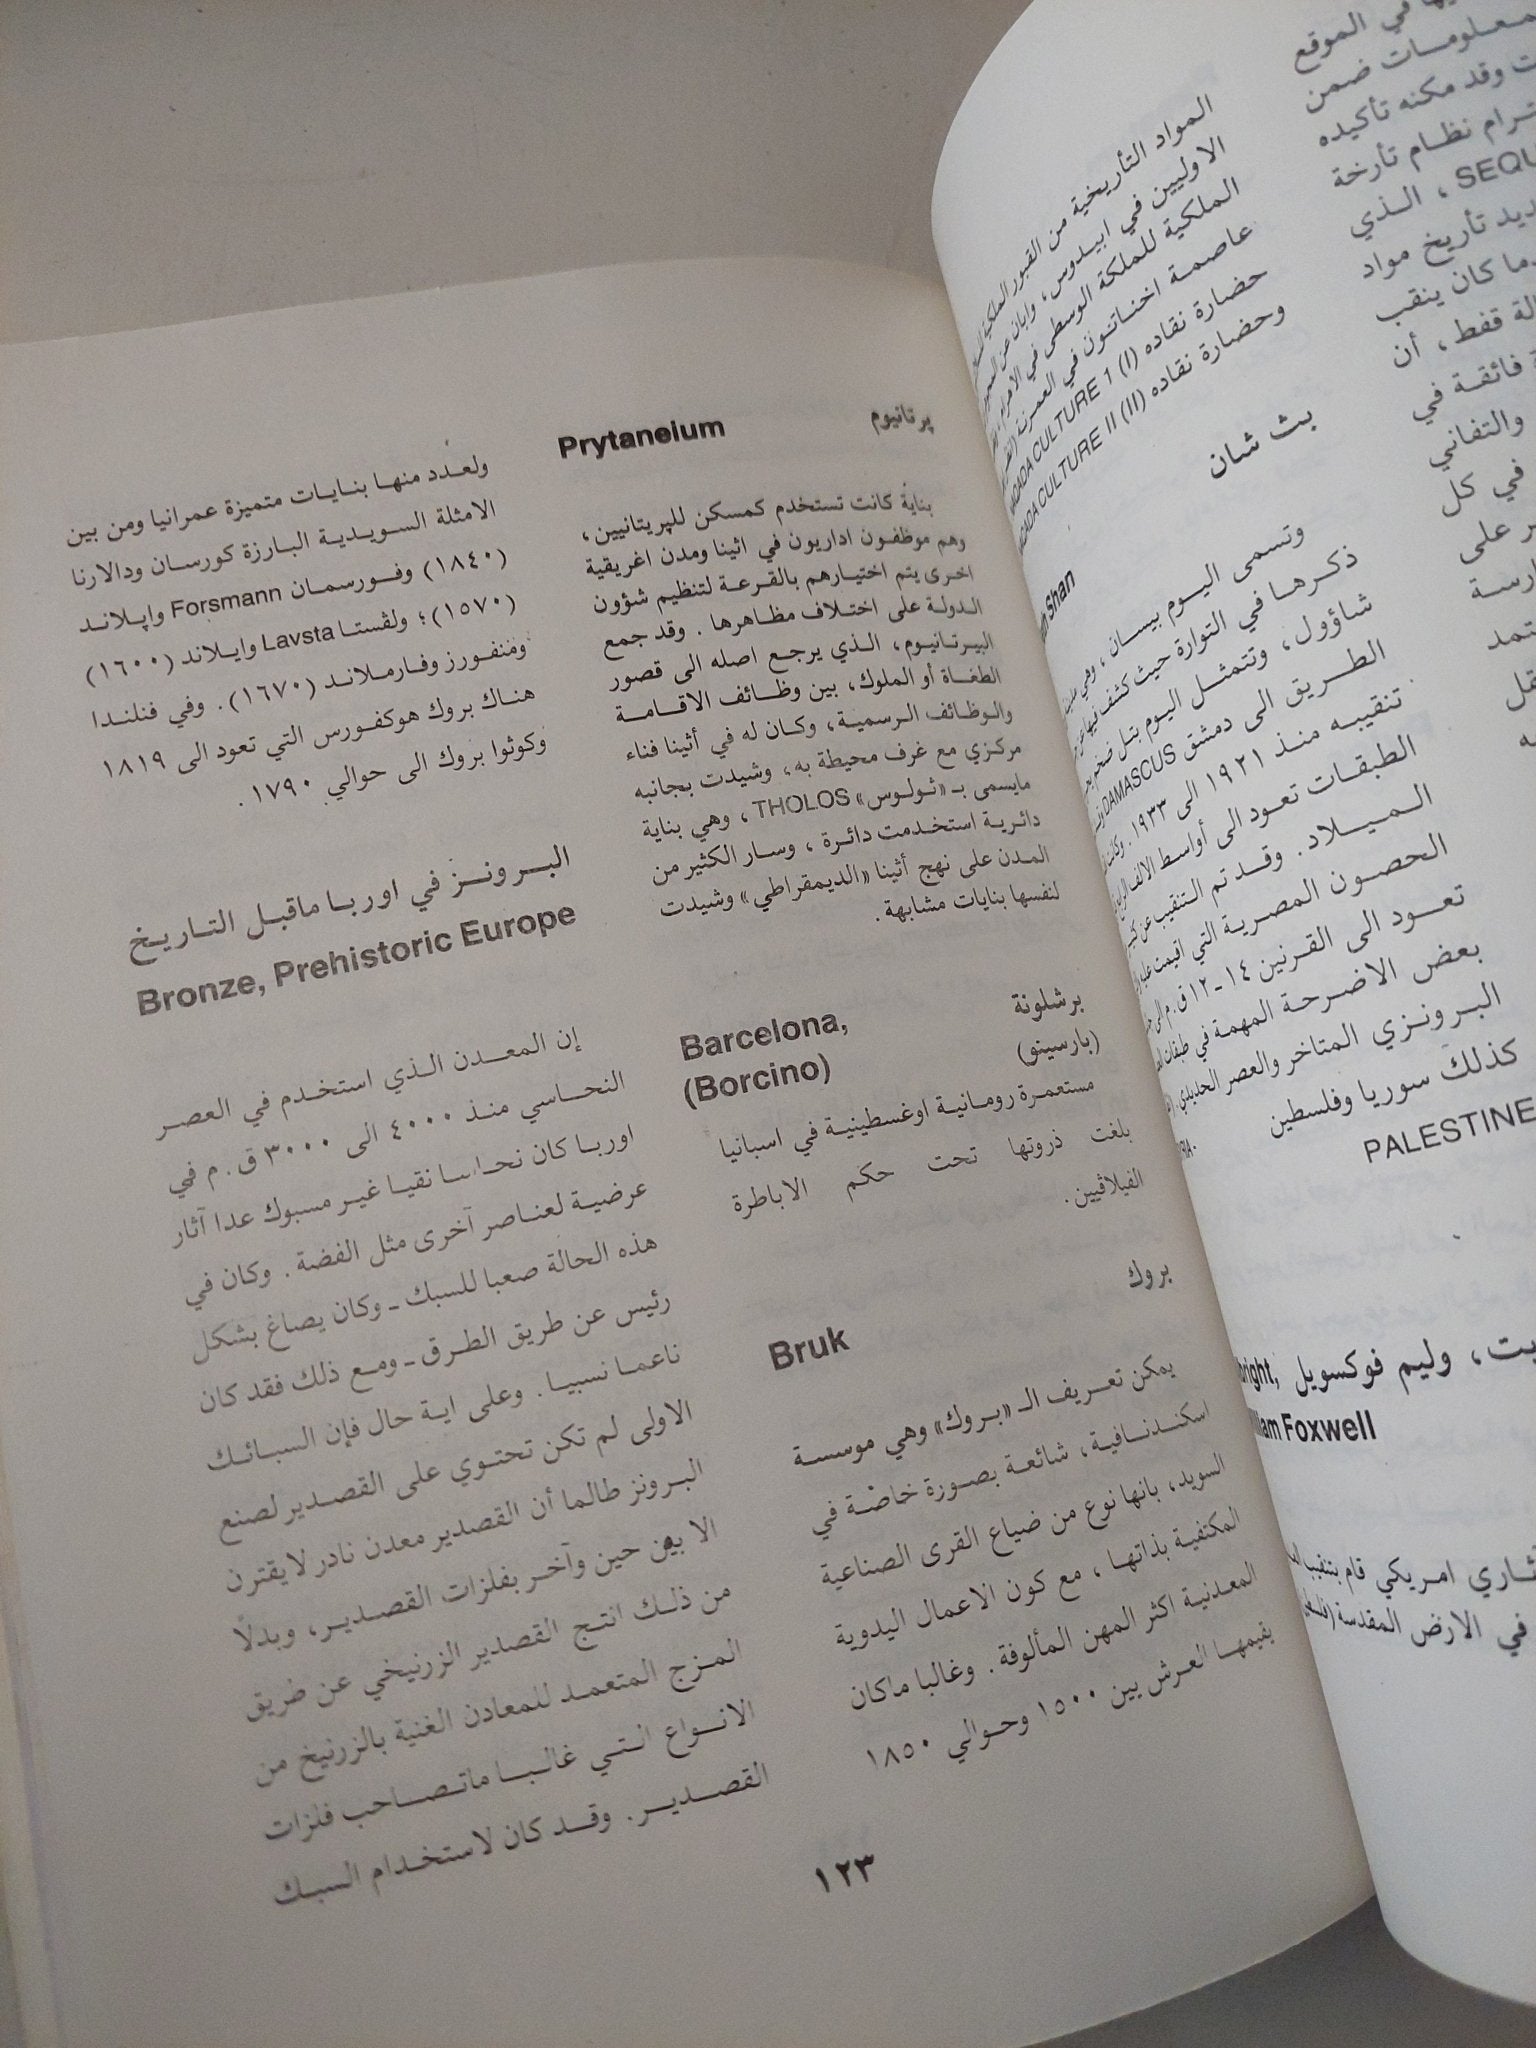 المواد التأريخية من القبور الملكية
الاوليين في ابيدوس، وابان عن
الملكية للملكة الوسطى في
عاصمة اخناتون في العمرنة
حضارة نقاده (I) NAGADA CULTURE 1
وحضارة نقاده (II) NAGADA CULTURE II
بث شان
Shan
وتسمى اليوم بيسان ، وهي
ذكرها في التوارة حيث كشف فيها عن
شاؤول، وتتمثل اليوم بتل ضخم
الطريق الى دمشق DAMASCUS
تنقيبه منذ ١٩٢١ الى ١٩٣٣. وكانت
الطبقات تعود الى أواسط الالف
الميلاد. وقد تم التنقيب عن
الحصون المصرية التي اقيمت
تعود الى القرنين ١٤-١٢ ق.م الى
بعض الاضرحة المهمة في طبقات
البرونزي المتاخر والعصر الحديدي.
كذلك سوريا وفلسطين
PALESTINE
في الموقع
ضمن
وقد مكنه تأكيده
نظام تأرخة
، الذي
تأريخ مواد
كان ينقب
قفط، أن
فائقة في
والتفاني
في كل
على
وليم فوكسويل
Foxwell
امريكي قام بتنقيب
في الارض المقدسة
پرتانيوم
Prytaneium
بناية كانت تستخدم كمسكن للپريتانيين،
وهم موظفون اداريون في اثينا ومدن اغريقية
اخرى يتم اختيارهم بالقرعة لتنظيم شؤون
الدولة على اختلاف مظاهرها . وقد جمع
البيرتانيوم، الذي يرجع اصله الى قصور
الطغاة أو الملوك، بين وظائف الاقامة
والوظائف الرسمية، وكان له في أثينا فناء
مركزي مع غرف محيطة به، وشيدت بجانبه
مايسمى بـ «ثولوس» THOLOS ، وهي بناية
دائرية استخدمت دائرة ، وسار الكثير من
المدن على نهج أثينا «الديمقراطي» وشيدت
لنفسها بنايات مشابهة.
برشلونة
Barcelona,
(بارسينو)
(Borcino)
مستعمرة رومانية اوغسطينية في اسبانيا
بلغت ذروتها تحت حكم الاباطرة
الفيلاڤيين.
بروك
Bruk
يمكن تعريف الـ «بروك» وهي موسسة
اسكندنافية، شائعة بصورة خاصّة في
السويد، بانها نوع من ضياع القرى الصناعية
المكتفية بذاتها ، مع كون الاعمال اليدوية
المعدنية اكثر المهن المألوفة. وغالبا ماكان
يقيمها العرش بين ١٥٠٠ وحوالي ١٨٥٠
ولعدد منها بنايات متميزة عمرانيا ومن بين
الامثلة السويدية البارزة كورسان ودالارنا
(١٨٤٠) وفورسمان Forsmann واپلاند
(١٥٧٠)؛ ولڤستا Lavsta وايلاند (١٦٠٠)
ومنفورز وفارملاند (١٦٧٠). وفي فنلندا
هناك بروك هوكفورس التي تعود الى ١٨١٩
وكوثوا بروك الى حوالي ١٧٩٠.
البرونز في اوربا ماقبل التاريخ
Bronze, Prehistoric Europe
إن المعدن الذي استخدم في العصر
النحاسي منذ ٤٠٠٠ الى ٣٠٠٠ ق.م في
اوربا كان نحاسا نقيا غير مسبوك عدا آثار
عرضية لعناصر آخرى مثل الفضة. وكان في
هذه الحالة صعبا للسبك - وكان يصاغ بشكل
رئيس عن طريق الطرق - ومع ذلك فقد كان
ناعما نسبيا. وعلى اية حال فإن السبائك
الاولى لم تكن تحتوي على القصدير لصنع
البرونز طالما أن القصدير معدن نادر لا يقترن
الا بين حين وآخر بفلزات القصدير، وبدلًا
من ذلك انتج القصدير الزرنيخي عن طريق
المزج المتعمد للمعادن الغنية بالزرنيخ من
الانواع التي غالبا ماتصاحب فلزات
القصدير. وقد كان لاستخدام السبك
١٢٣